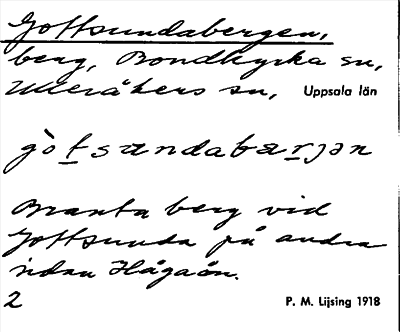 Gottsundabergen,
berg, Bondkyrka sn,
Ulleråkers sn, Uppsala län
gòtsundabærjən
Branta berg vid
Gottsunda på andra
sidan Hågaån.
2 P. M. Lijsing 1918